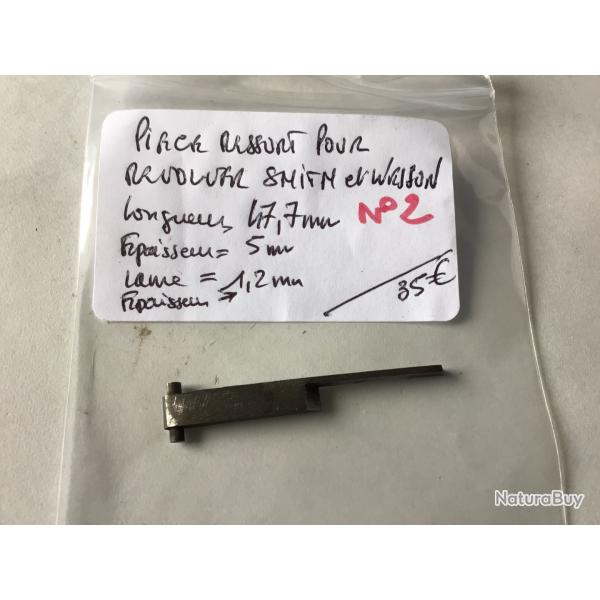 PIECE RESSORT POUR
REVOLVER SMITH et WESSON
Longueur 47,7mm N°2
Epaisseur = 5 mm
Lame = 1,2 mm
Epaisseur →
35€
NaturaBuy